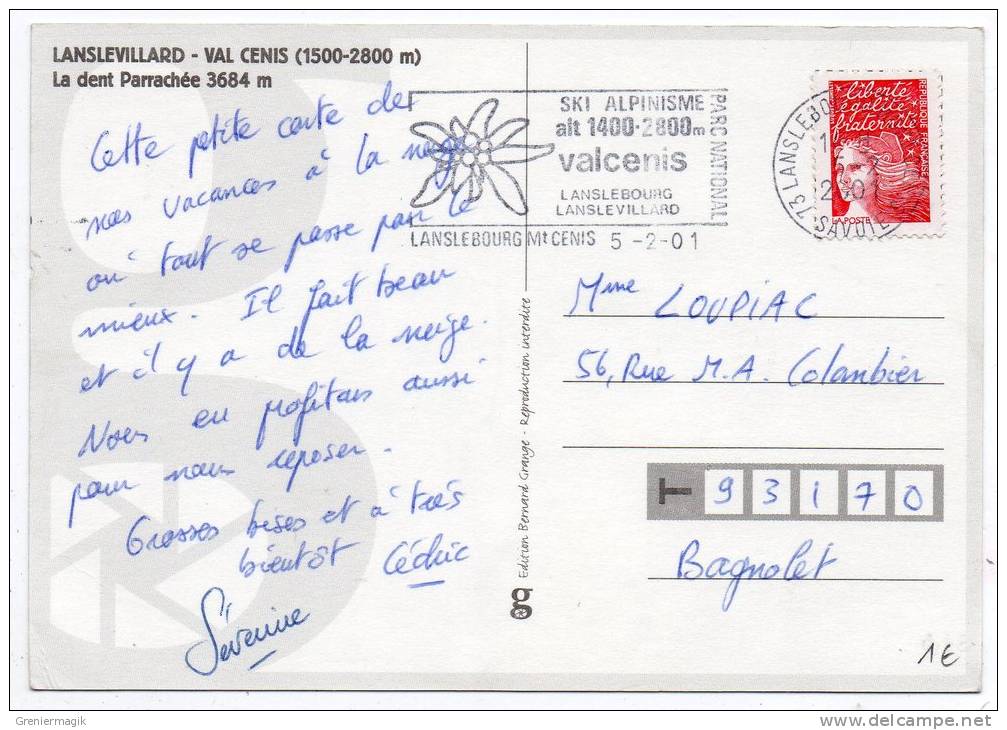 LANSLEVILLARD - VAL CENIS (1500-2800 m)
La dent Parrachée 3684 m
Cette petite carte des
nos vacances à la neige
où tout se passe pour le
mieux. Il fait beau
et il y a de la neige.
Nous en profitons aussi
pour nous reposer.
Grosses bises et à très
bientôt Cédric
Séverine
SKI ALPINISME
alt 1400-2800m
valcenis
LANSLEBOURG
LANSLEVILLARD
PARC NATIONAL
LANSLEBOURG Mt CENIS 5 -2-01
73 LANSLEBO
SAVOIE
liberté
égalité
fraternité
REPUBLIQUE FRANÇAISE
LA POSTE
Edition Bernard Grange - Reproduction interdite
Mme LOUPIAC
56, Rue M.A. Colombier
T 93170
Bagnolet
1€
Greniermagik
www.delcampe.net